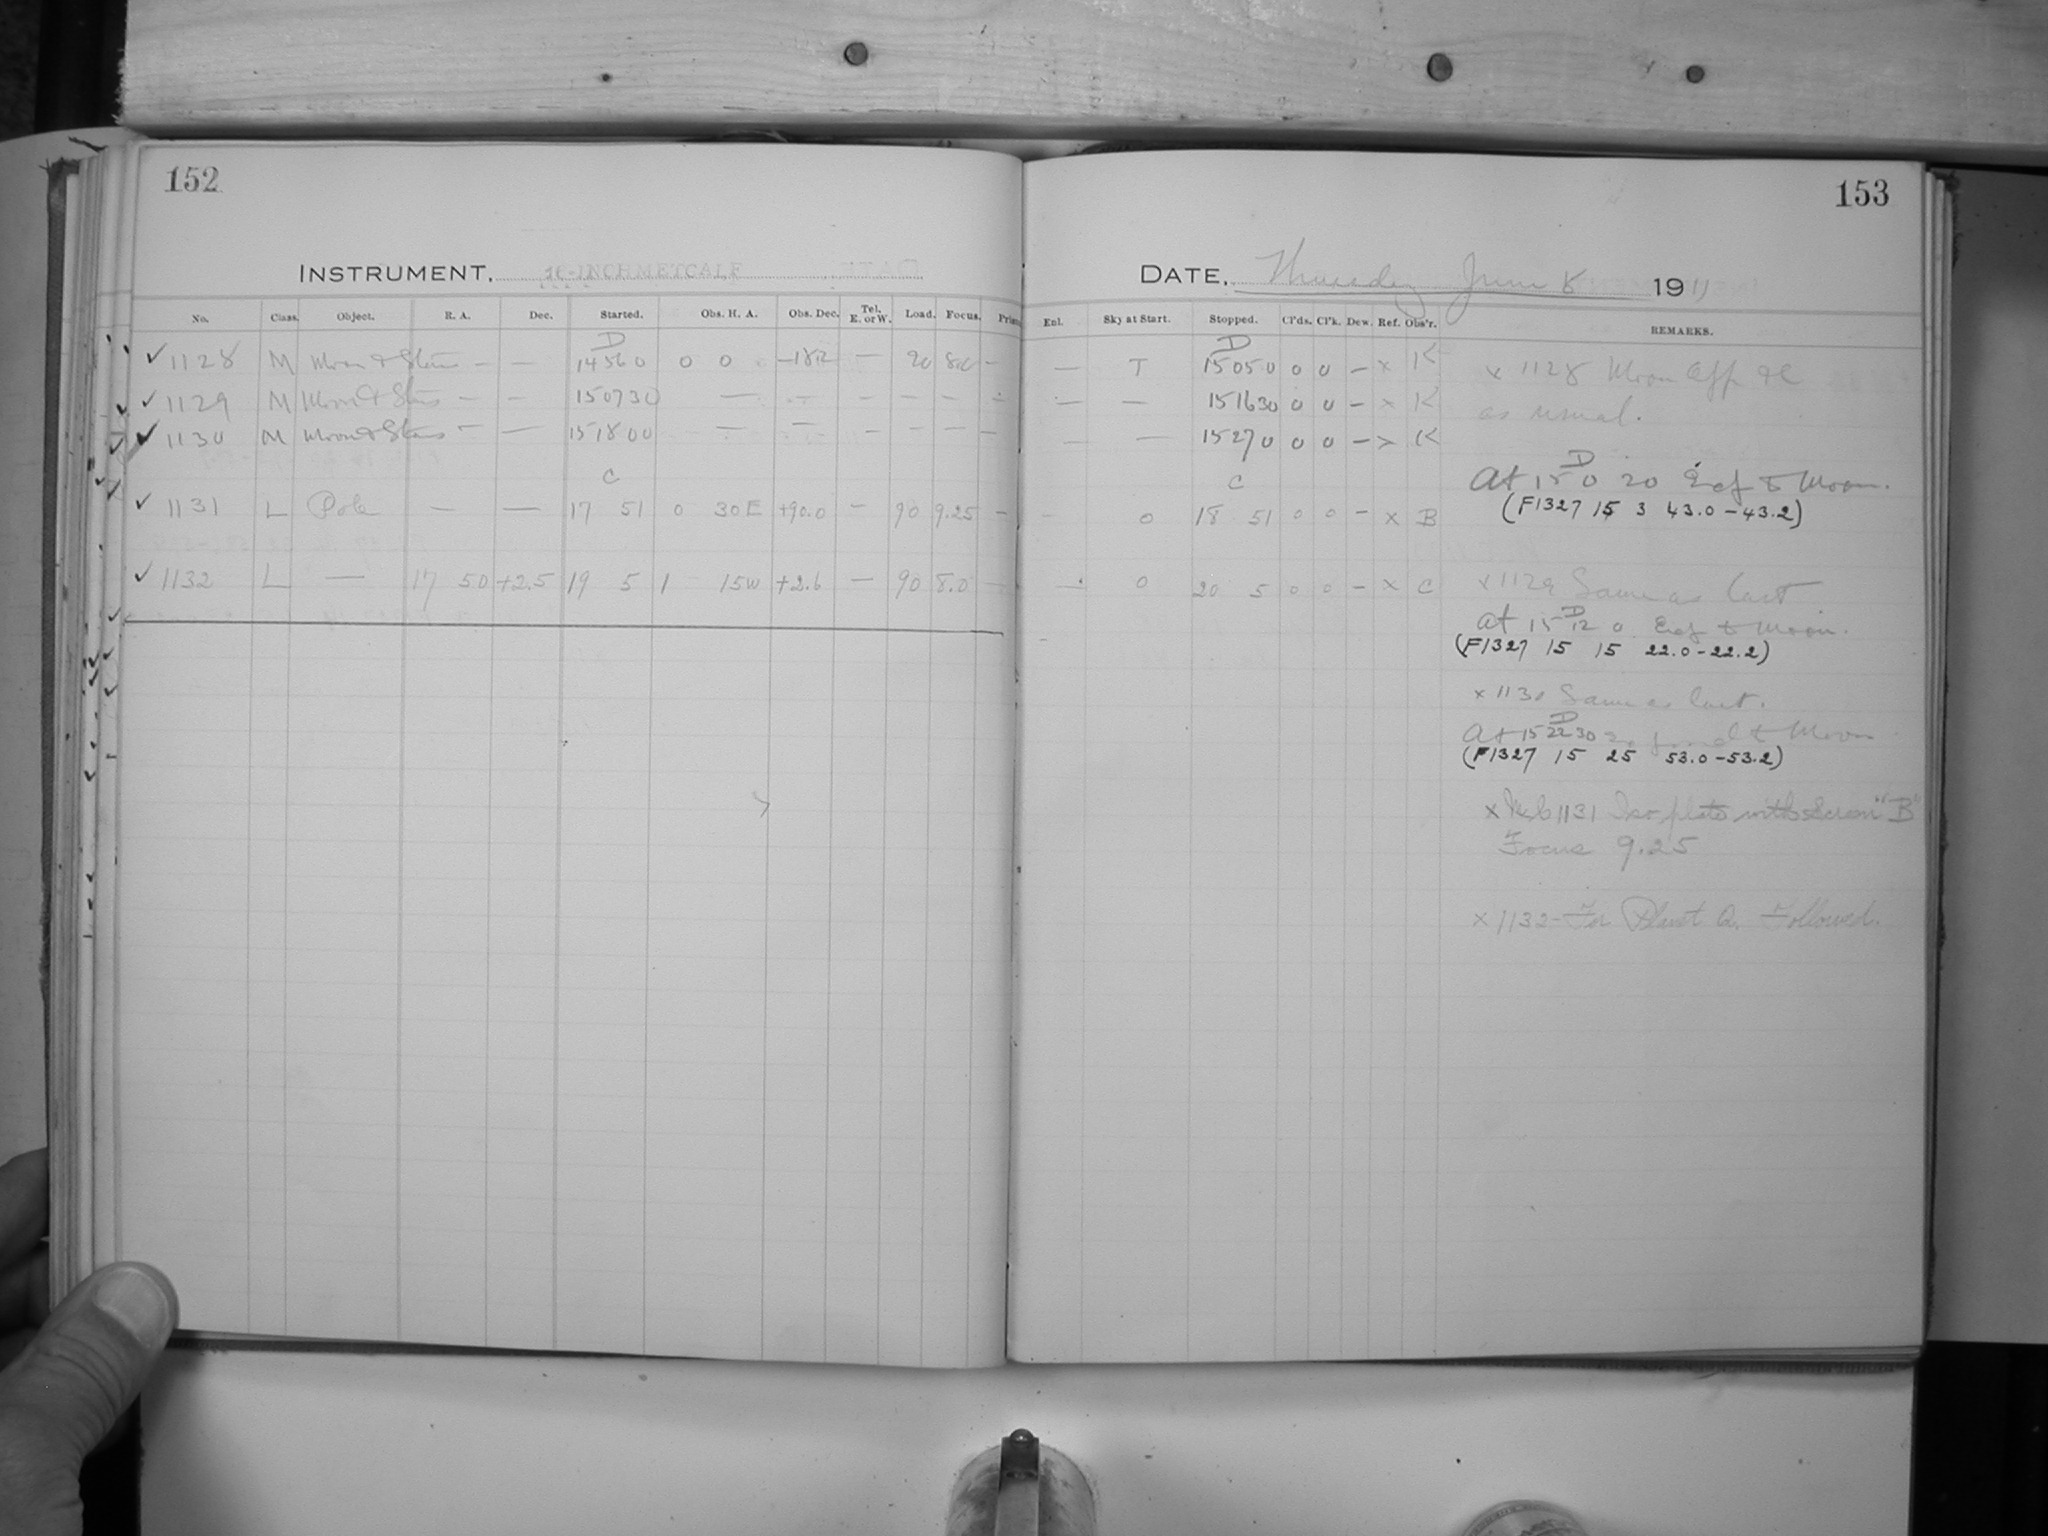 152
INSTRUMENT, 16-INCH METCALF
No. Class. Object. R. A. Dec. Started. Obs. H. A. Obs. Dec. Tel. E. or W. Load. Focus.
D
✓ 1128 M Moon & Stars — — 14 56 0 0 0 — 90 8.0 —
✓ 1129 M Moon & Stars — — 15 07 30 — — — — — —
✓ 1130 M Moon & Stars — — 15 18 00 — — — — — —
C
✓ 1131 L Pole — — 17 51 0 30E +90.0 — 90 9.25 —
✓ 1132 L — 17 50 +2.5 19 5 1 15W +2.6 — 90 8.0 —
153
DATE, Thursday June 8 1911
Enl. Sky at Start. Stopped. Cl'ds. Cl'k. Dew. Ref. Obs'r. REMARKS.
D
— T 15 05 0 0 0 — x K
— — 15 16 30 0 0 — x K
— — 15 27 0 0 0 — x K
C
- 0 18 51 0 0 — x B
— 0 20 5 0 0 — x C
x 1128 Moon
as usual.
D
At 15 0 20 to Moon.
(F1327 15 3 43.0-43.2)
x 1129 Same as last
D
At 15 12 0 to Moon.
(F1327 15 15 22.0-22.2)
x 1130 Same as last.
D
At 15 22 30 to Moon
(F1327 15 25 53.0-53.2)
x 1131 Iso plate with Screen "B"
Focus 9.25
x 1132- For Planet Followed.